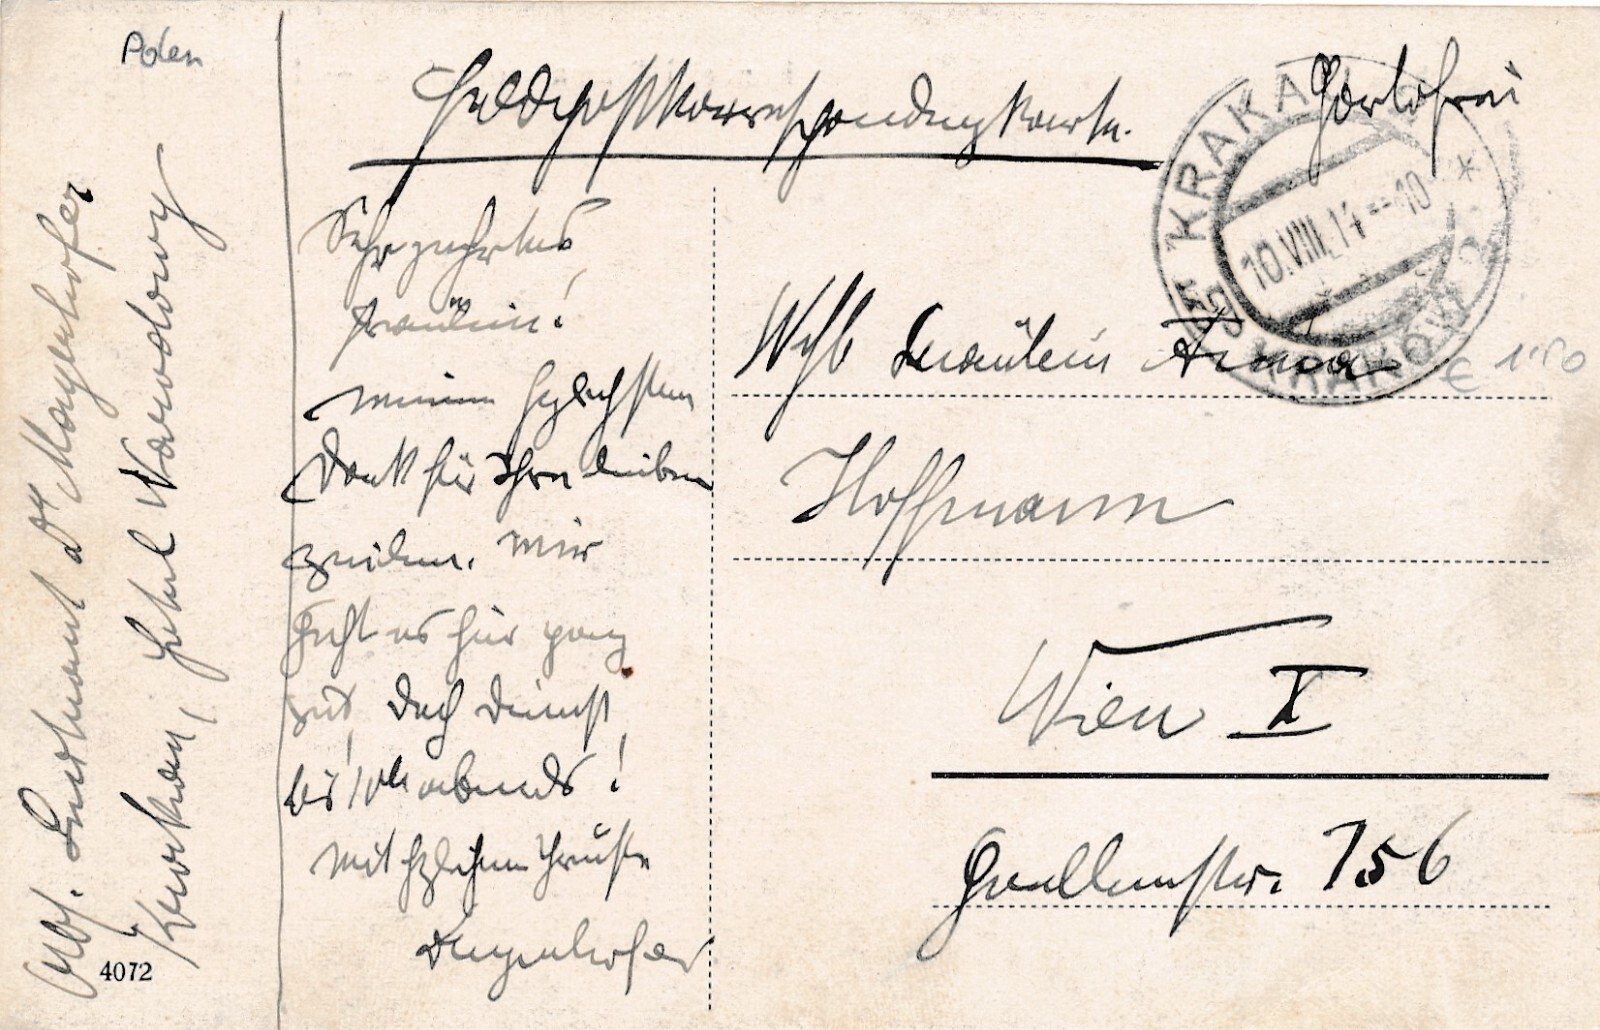 Polen
Feldpostkorrespondenzkarte.
Portofrei
KRAKAU
KRAKÓW
10.VIII.14--10
Sehr geehrtes
Fräulein!
meinen herzlichsten
Dank für Ihre lieben
Zeilen. Mir
geht es hier ganz
gut, doch Dienst
bis 10h abends!
Mit hzlichen Grüßen
Mayerhofer
Wohlg Fräulein Anna
Hoffmann
Wien I
756
€ 1'50
Abs. Leutnant Dr Mayerhofer
Krakau, Hotel Narodowy
4072